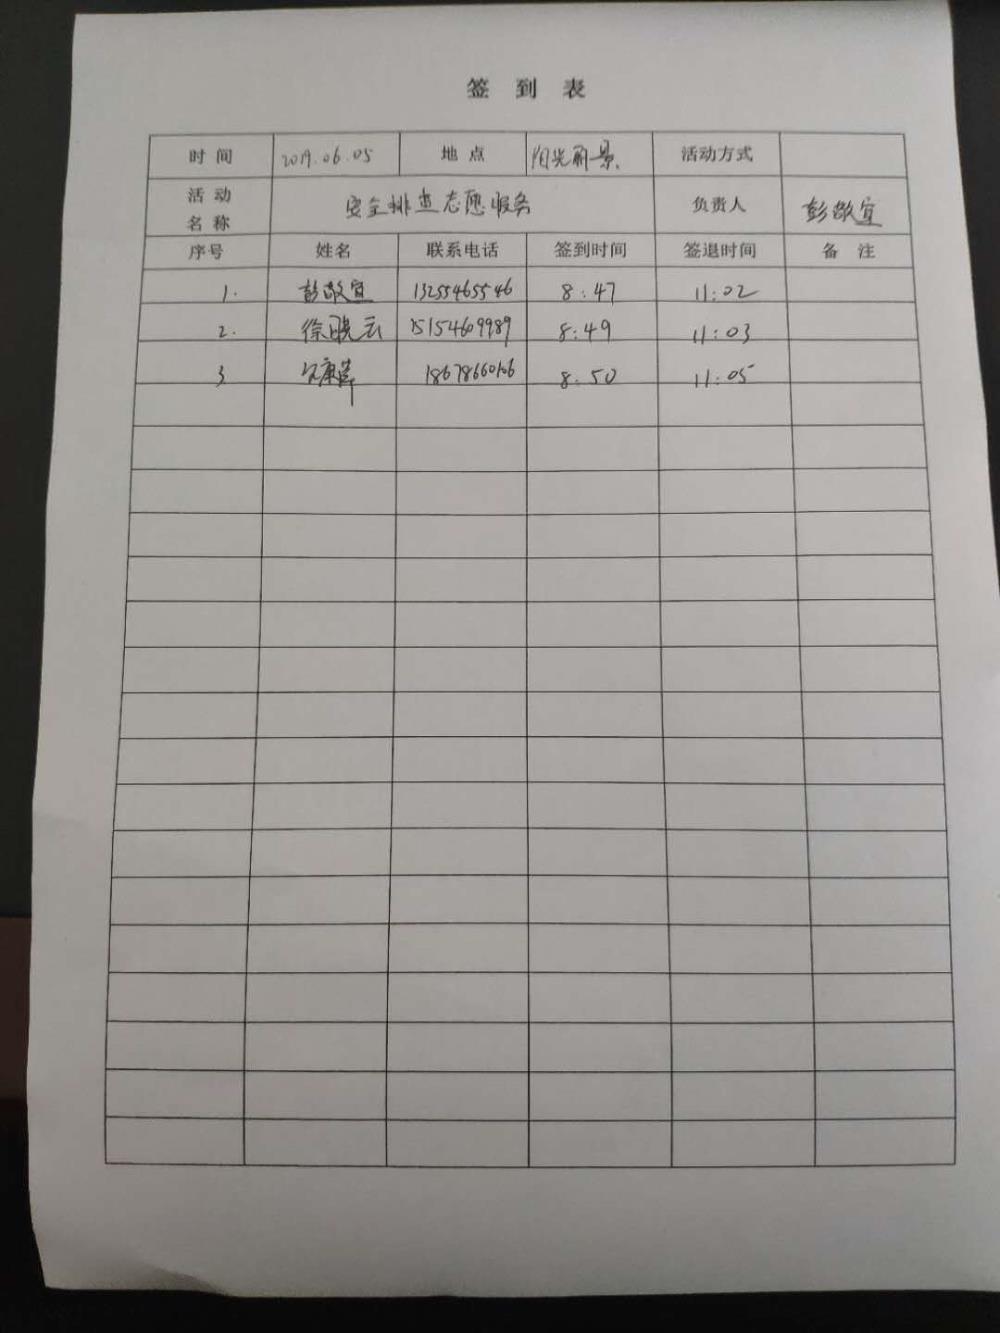 签 到 表
时 间 2019.06.05 地 点 阳光丽景 活动方式
活 动 名 称 安全排查志愿服务 负责人 彭敬宜
序号 姓名 联系电话 签到时间 签退时间 备 注
1. 彭敬宜 13255465546 8:47 11:02
2. 徐晓云 15154609989 8:49 11:03
3 18678660106 8:50 11:05